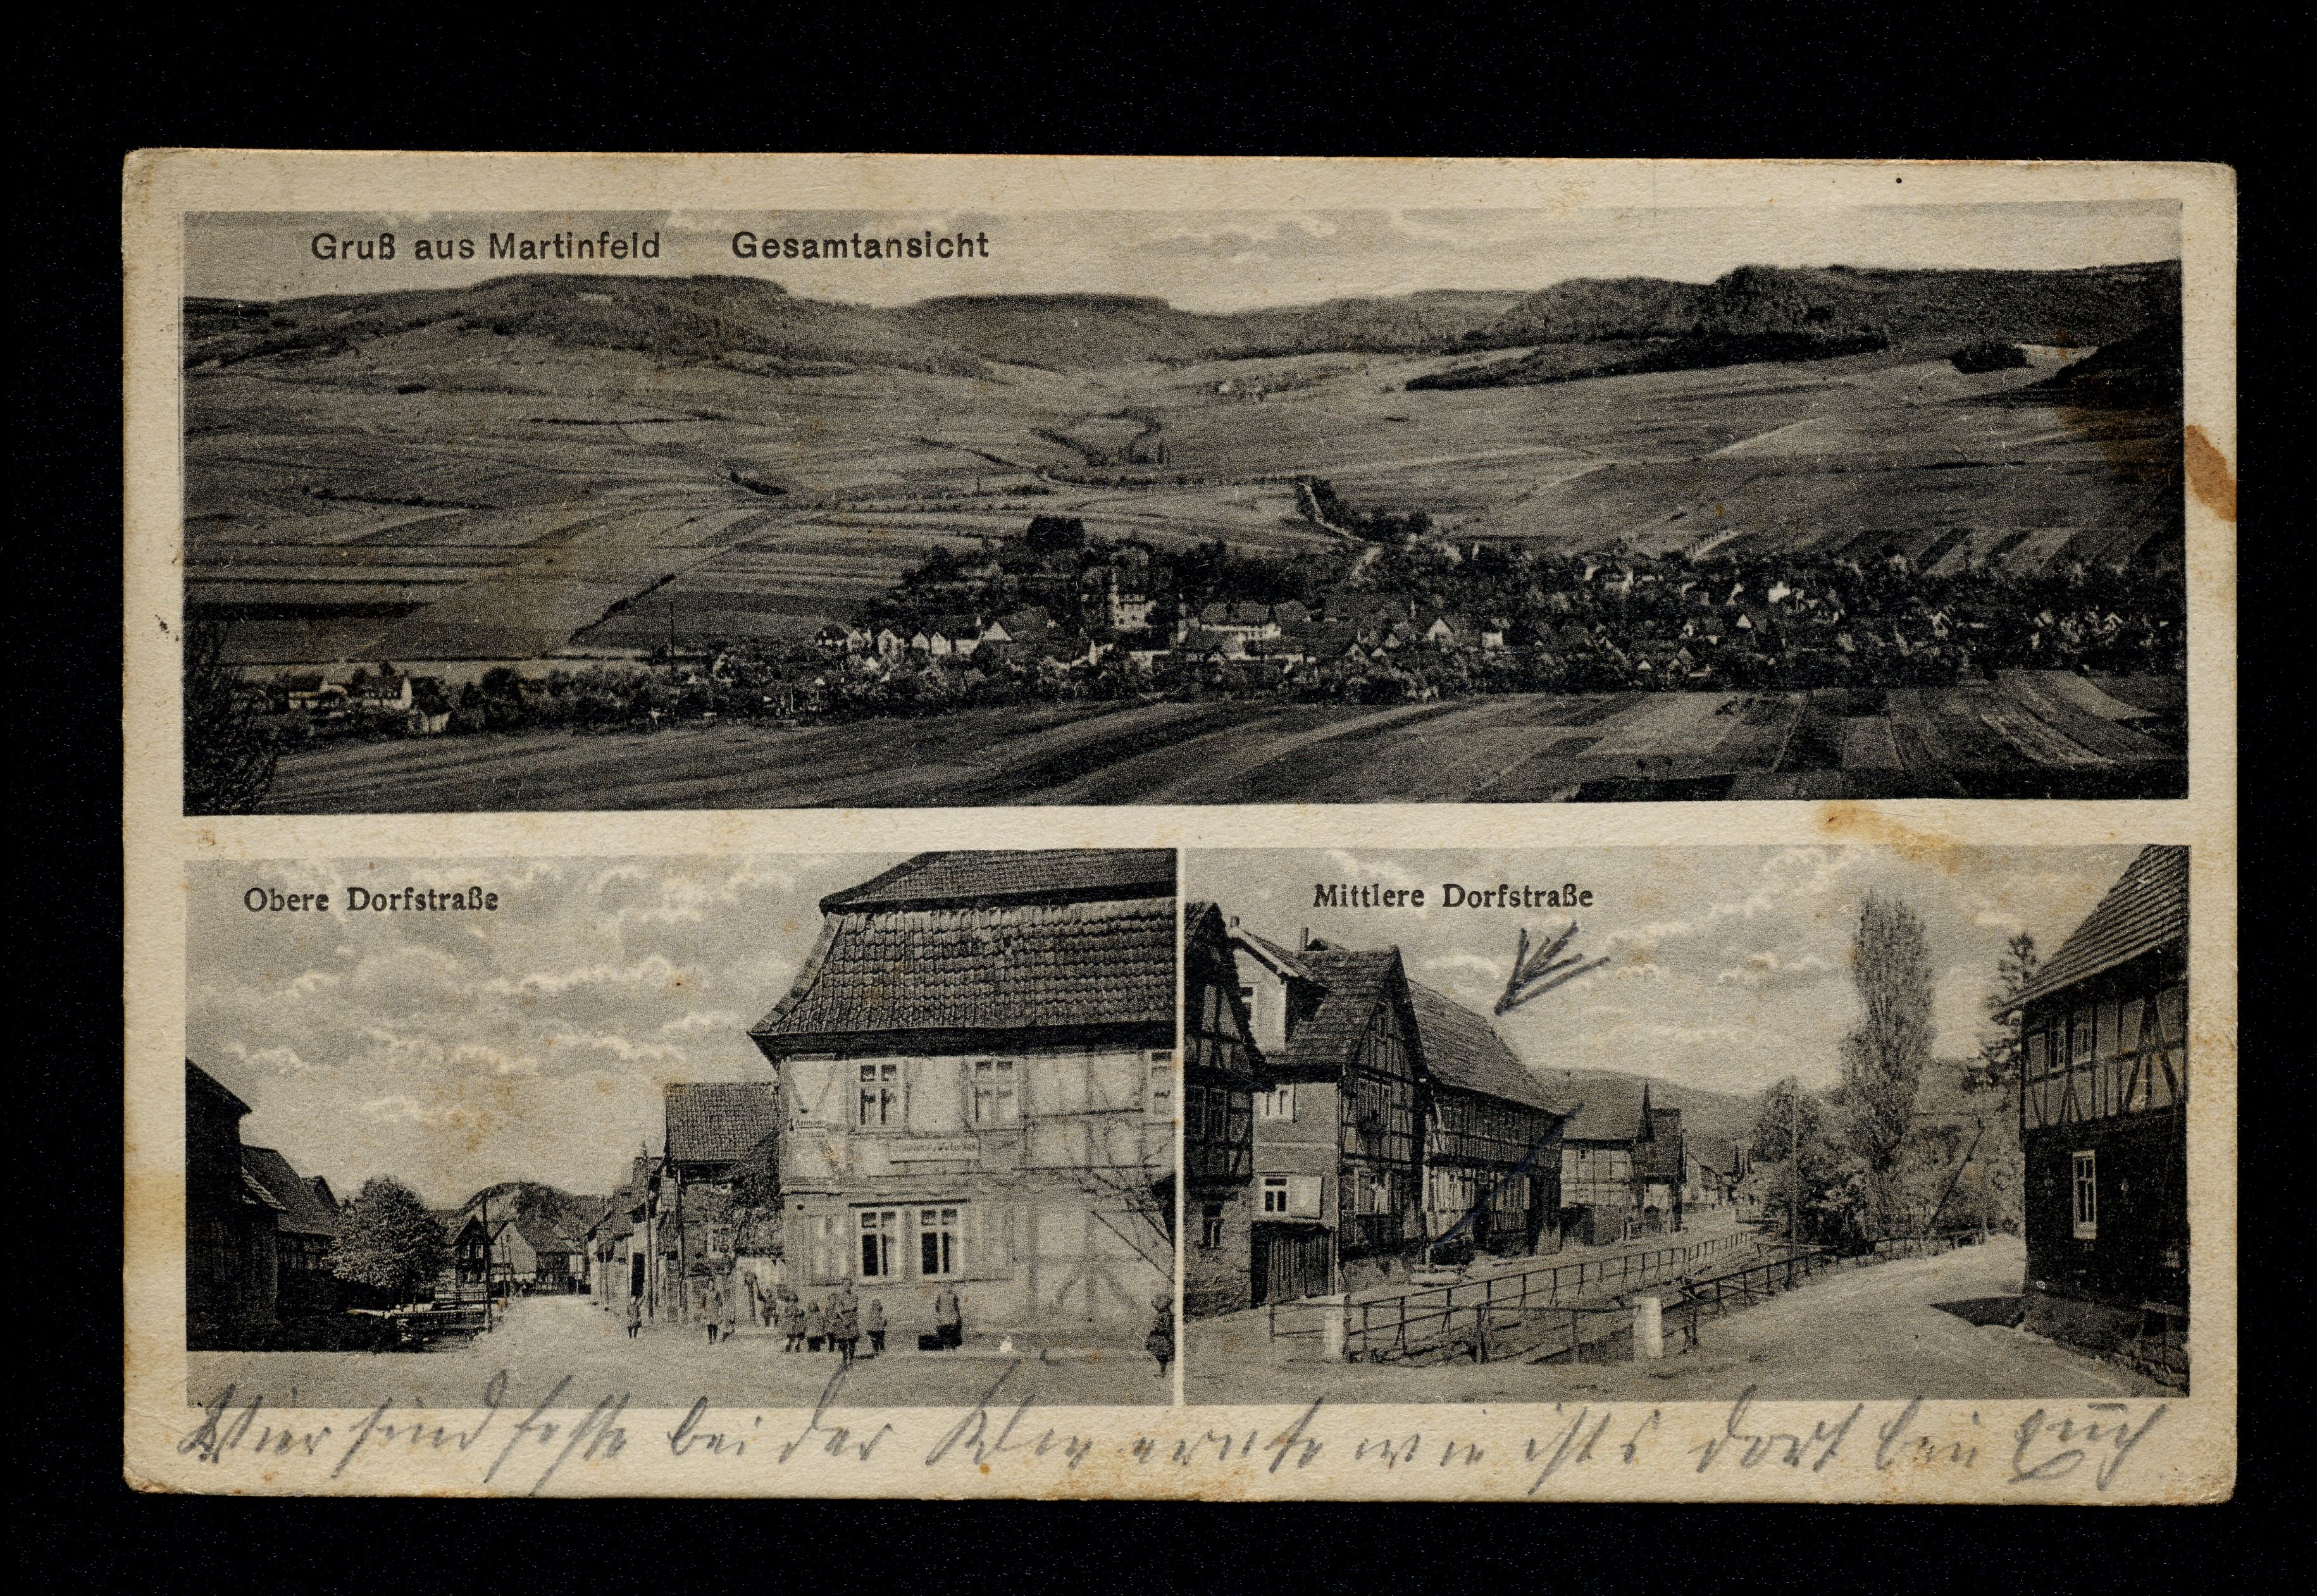 Gruß aus Martinfeld Gesamtansicht
Obere Dorfstraße
Mittlere Dorfstraße
Wier sind feste bei der ernte wie ists dort bei Euch